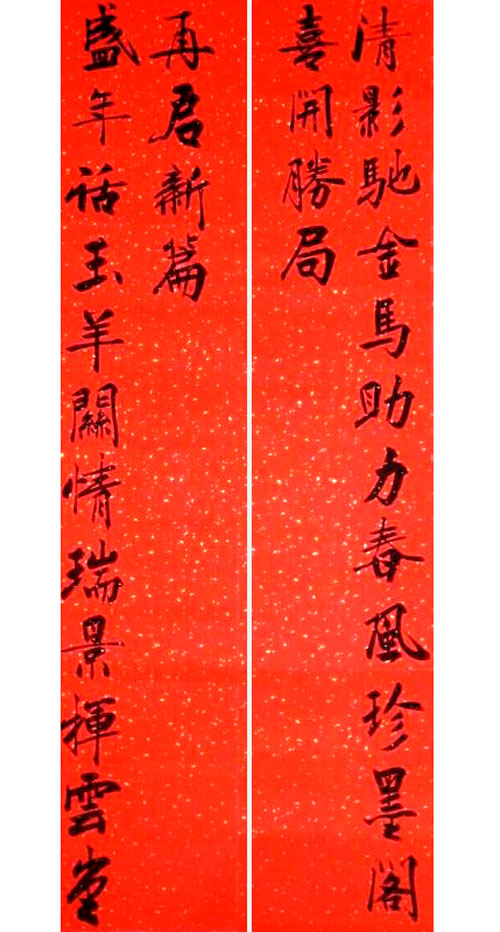 清影馳金馬助力春風珍墨閣
喜開勝局
盛年话玉羊關情瑞景揮雲堂
再启新篇